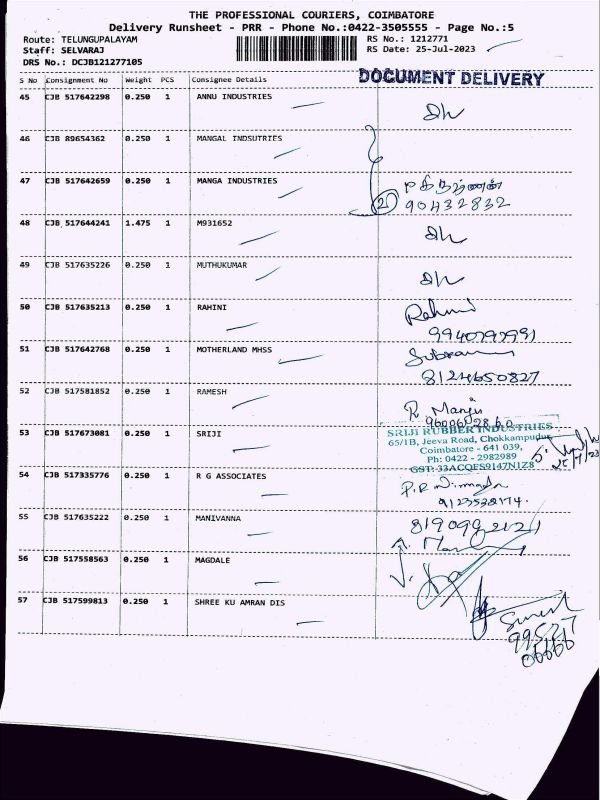 THE PROFESSIONAL COURIERS, COIMBATORE
Delivery Runsheet - PRR - Phone No.:0422-3505555 - Page No.:5
Route: TELUNGUPALAYAM RS No.: 1212771
Staff: SELVARAJ RS Date: 25-Jul-2023
DRS No.: DCJB121277105
DOCUMENT DELIVERY
S No Consignment No Weight PCS Consignee Details
45 CJB 517642298 0.250 1 ANNU INDUSTRIES
46 CJB 89654362 0.250 1 MANGAL INDSUTRIES
47 CJB 517642659 0.250 1 MANGA INDUSTRIES
2 90432832
48 CJB 517644241 1.475 1 M931652
49 CJB 517635226 0.250 1 MUTHUKUMAR
50 CJB 517635213 0.250 1 RAHINI
51 CJB 517642768 0.250 1 MOTHERLAND MHSS
8124650827
52 CJB 517581852 0.250 1 RAMESH
R Manju
53 CJB 517673081 0.250 1 SRIJI
SRIJI RUBBER INDUSTRIES
65/1B, Jeeva Road, Chokkampudur
Coimbatore - 641 039,
Ph: 0422 - 2982989
GST: 33ACQFS9147N1Z8
25/7/23
54 CJB 517335776 0.250 1 R G ASSOCIATES
55 CJB 517635222 0.250 1 MANIVANNA
56 CJB 517558563 0.250 1 MAGDALE
57 CJB 517599813 0.250 1 SHREE KU AMRAN DIS
Suresh
99527
06666